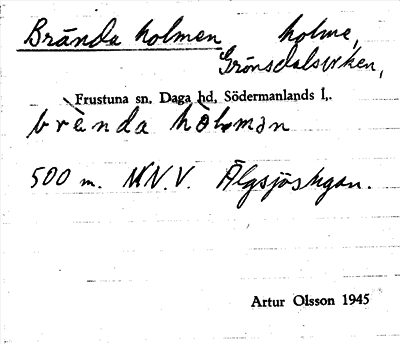 Brända holmen holme,
Grönsdalsviken,
Frustuna sn, Daga hd, Södermanlands l.
brènda hòlmən
500 m. NNV. Älgsjöstugan.
Artur Olsson 1945